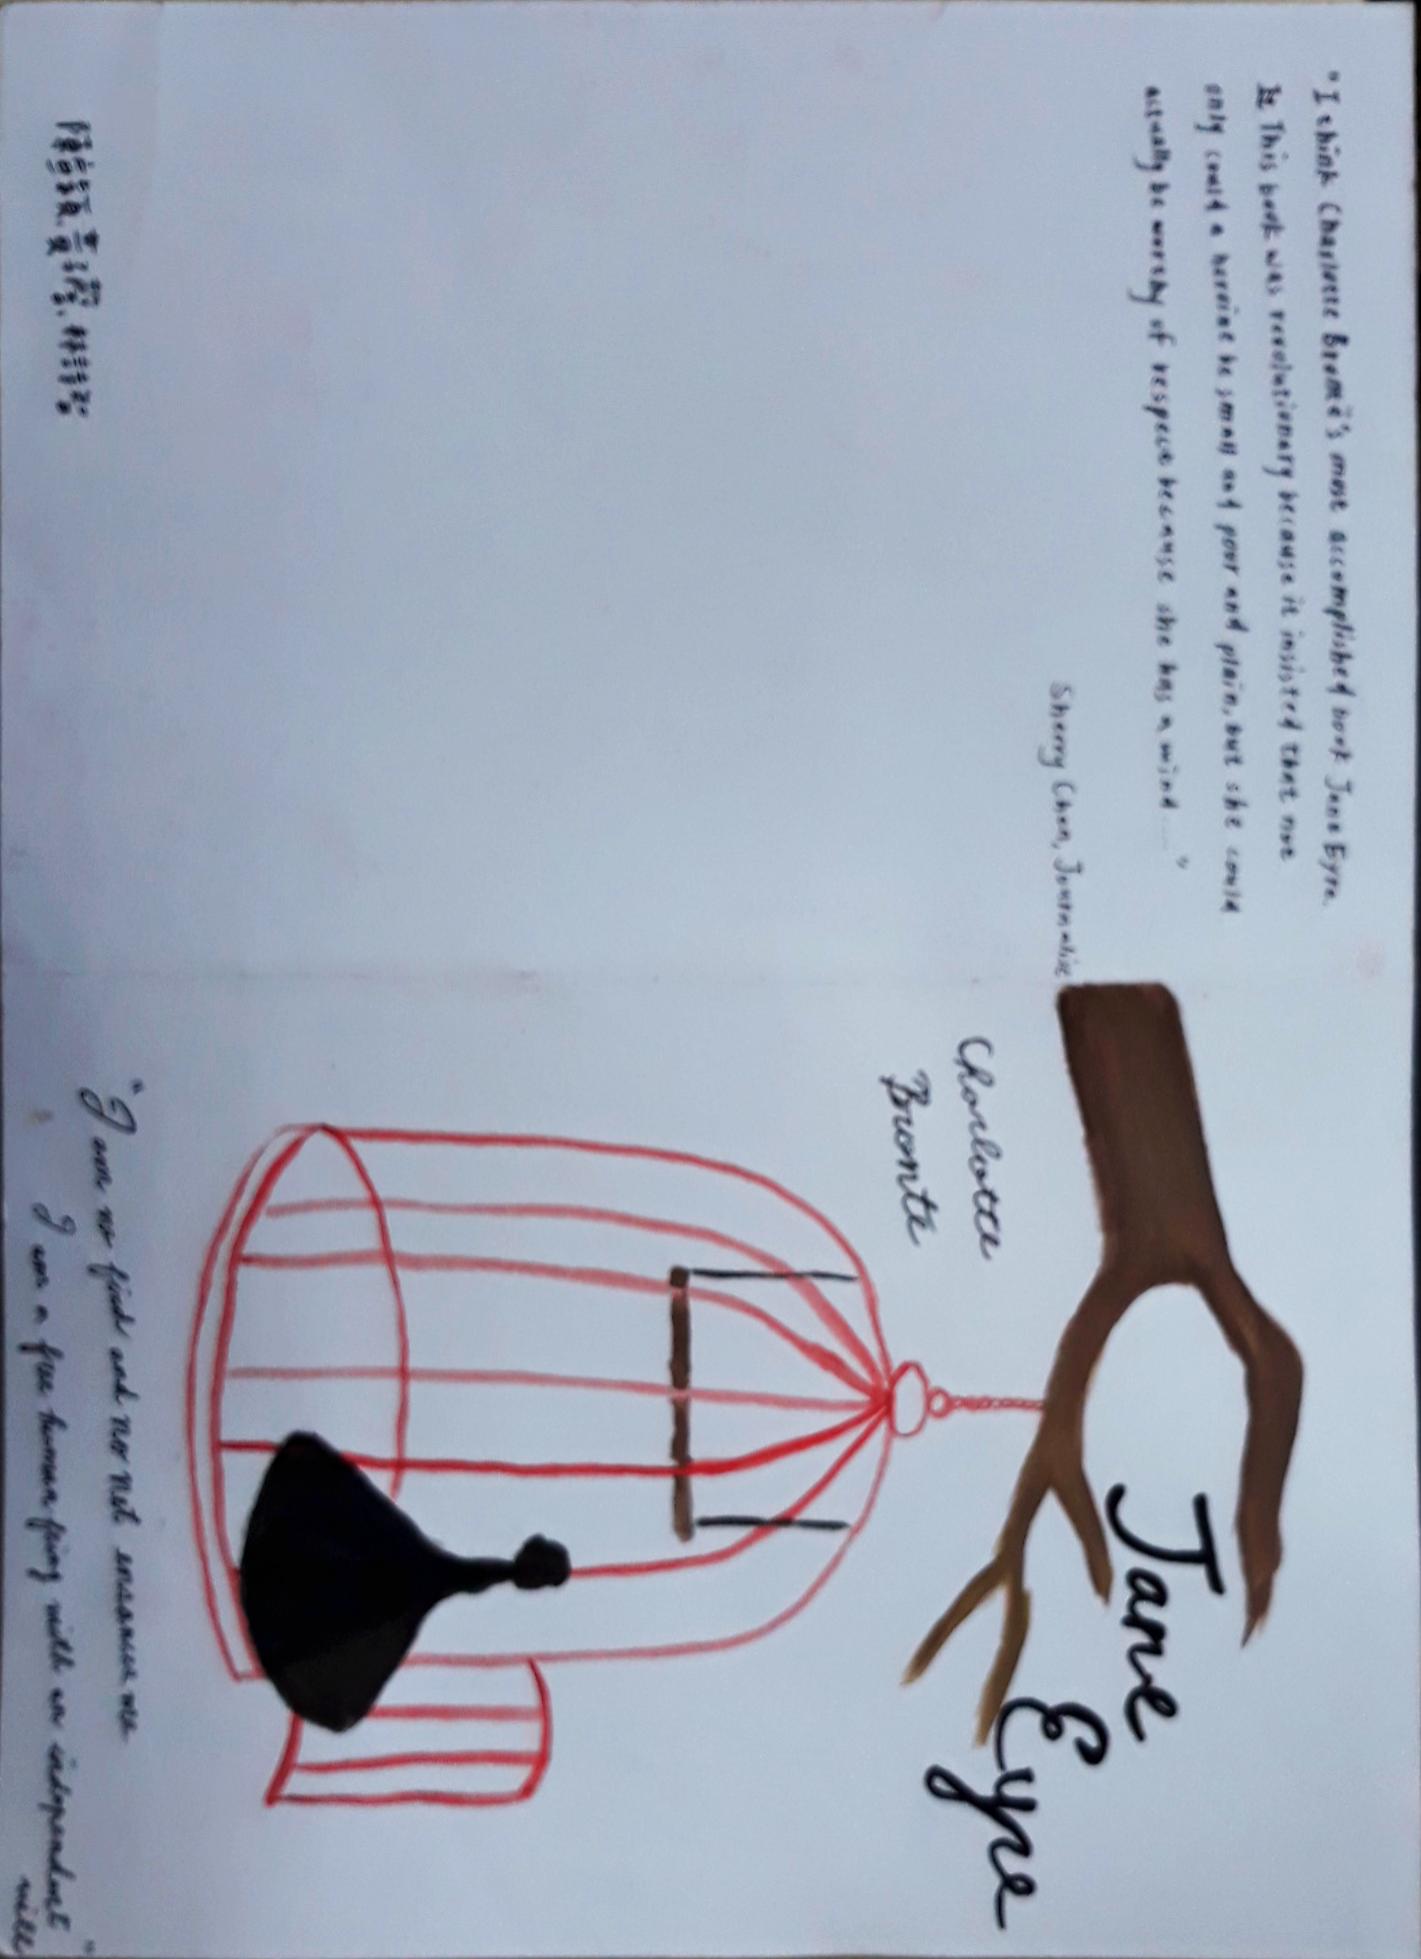 "I think Charlotte Bronë's most accomplished book Jane Eyre.
It This book was revolutionary because it insisted that not
only could a heroine be small and poor and plain, but she could
actually be worthy of respect because she has a mind ....."
Sherry Chen, Journalist
Jane
Eyre
Charlotte
Bronte
"I am no fird and no net ensances me
I am a free human feing with an independent"
will
陳